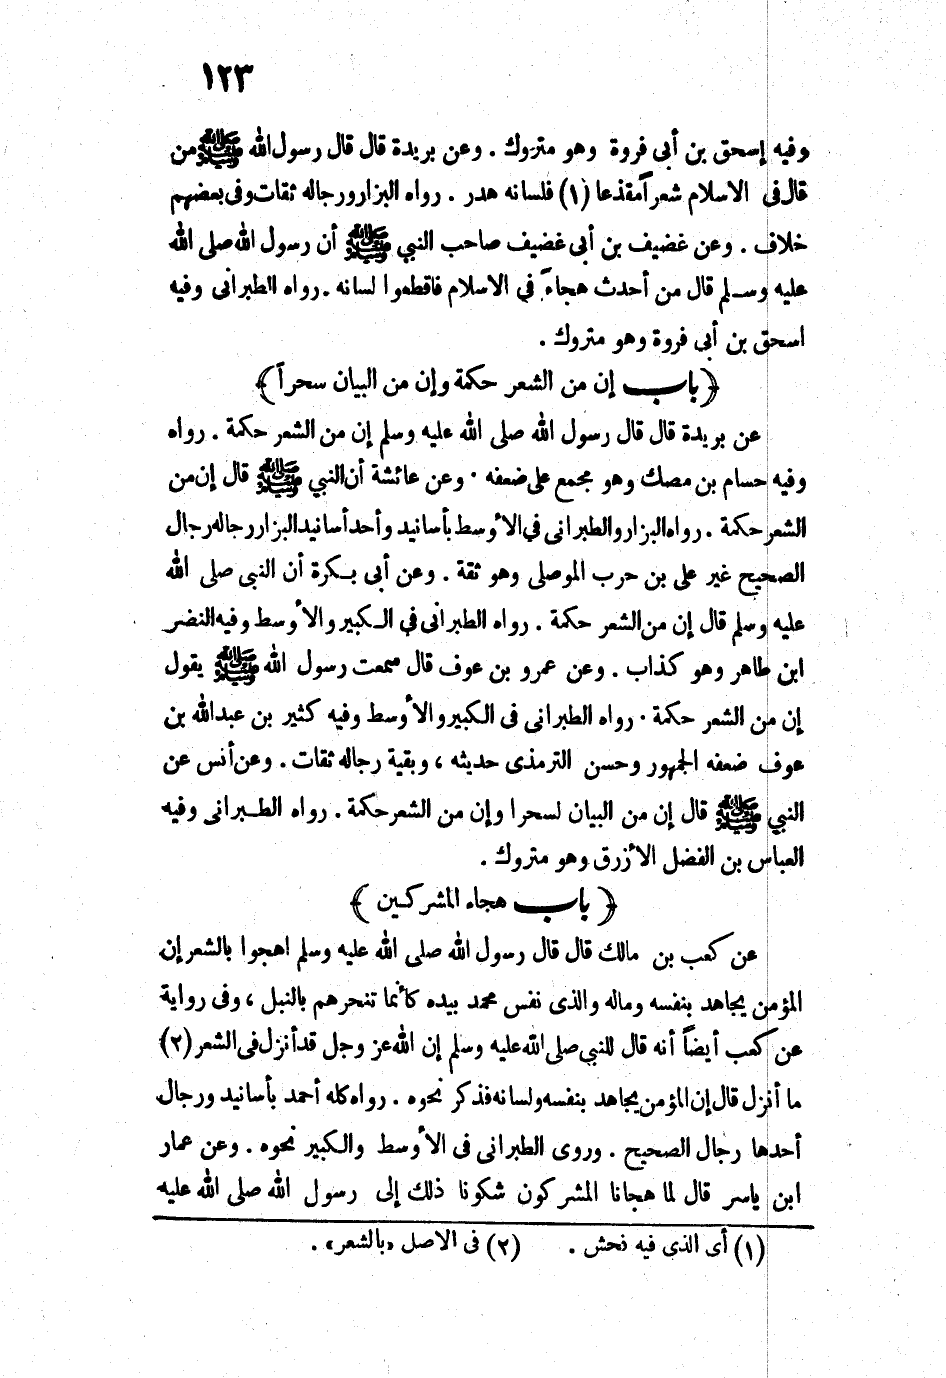 ١٢٣
وفيه إسحق بن أبى فروة وهو متروك . وعن بريدة قال قال رسول الله ﷺ من
قال فى الاسلام شعراً مقذعا (١) فلسانه هدر . رواه البزار ورجاله ثقات وفى بعضهم
خلاف . وعن غضيف بن أبى غضيف صاحب النبي ﷺ أن رسول الله صلى الله
عليه وسلم قال من أحدث هجاءً في الاسلام فاقطعوا لسانه . رواه الطبرانى وفيه
اسحق بن أبى فروة وهو متروك .
﴿ باب إن من الشعر حكمة وإن من البيان سحراً ﴾
عن بريدة قال قال رسول الله صلى الله عليه وسلم إن من الشعر حكمة . رواه
وفيه حسام بن مصك وهو مجمع على ضعفه . وعن عائشة أن النبي ﷺ قال إن من
الشعر حكمة . رواه البزار والطبرانى في الأوسط بأسانيد وأحد أسانيد البزار رجاله رجال
الصحيح غير على بن حرب الموصلى وهو ثقة . وعن أبى بكرة أن النبى صلى الله
عليه وسلم قال إن من الشعر حكمة . رواه الطبرانى في الكبير والأوسط وفيه النضر
ابن طاهر وهو كذاب . وعن عمرو بن عوف قال سمعت رسول الله ﷺ يقول
إن من الشعر حكمة . رواه الطبرانى فى الكبير والأوسط وفيه كثير بن عبدالله بن
عوف ضعفه الجمهور وحسن الترمذى حديثه ، وبقية رجاله ثقات . وعن أنس عن
النبي ﷺ قال إن من البيان لسحرا وإن من الشعر حكمة . رواه الطبرانى وفيه
العباس بن الفضل الأزرق وهو متروك .
﴿ باب هجاء المشركين ﴾
عن كعب بن مالك قال قال رسول الله صلى الله عليه وسلم اهجوا بالشعر إن
المؤمن يجاهد بنفسه وماله والذى نفس محمد بيده كأنما تنحرهم بالنبل ، وفى رواية
عن كعب أيضاً أنه قال للنبي صلى الله عليه وسلم إن الله عز وجل قد أنزل فى الشعر (٢)
ما أنزل قال إن المؤمن يجاهد بنفسه ولسانه فذكر نحوه . رواه كله أحمد بأسانيد ورجال
أحدها رجال الصحيح . وروى الطبرانى فى الأوسط والكبير نحوه . وعن عمار
ابن ياسر قال لما هجانا المشركون شكونا ذلك إلى رسول الله صلى الله عليه
(١) أى الذى فيه فحش . (٢) فى الاصل «بالشعر» .